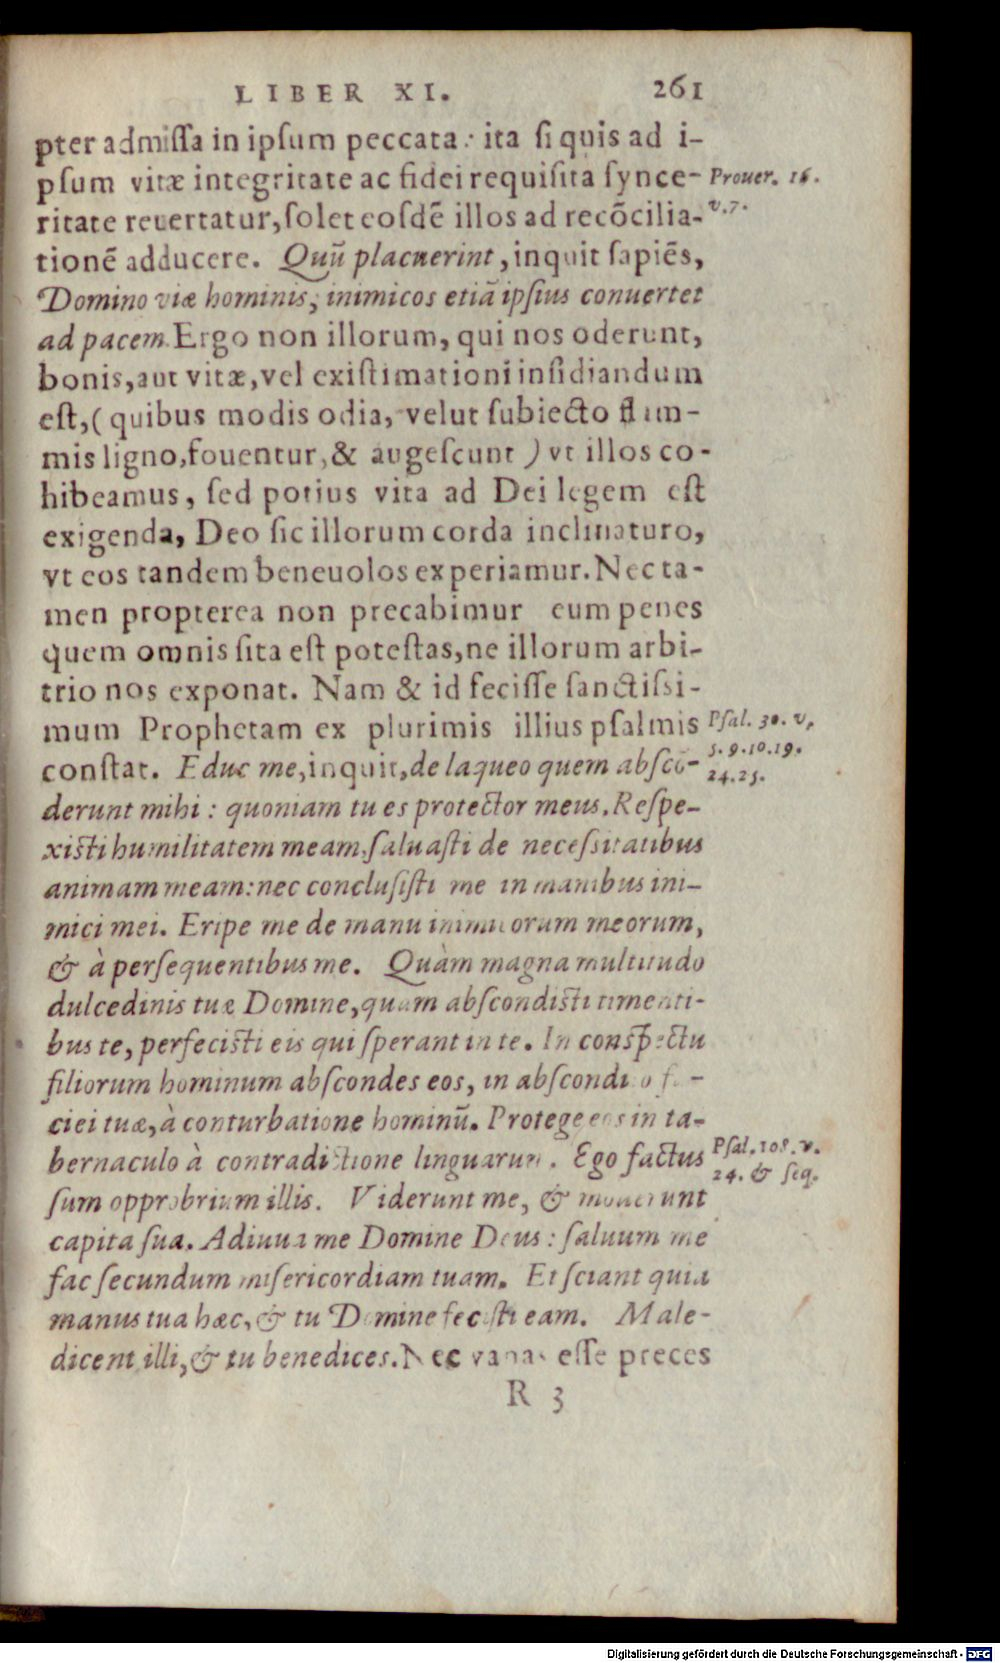 LIBER XI. 261
pter admiſſa in ipſum peccata: ita ſi quis ad i-
pſum vitæ integritate ac fidei requiſita ſynce-
Prouer. 16.
ritate reuertatur, ſolet eoſdē illos ad recōcilia-
v. 7.
tionē adducere. Quū placuerint, inquit ſapiēs,
Domino viæ hominis, inimicos etiā ipſius conuertet
ad pacem. Ergo non illorum, qui nos oderunt,
bonis, aut vitæ, vel exiſtimationi inſidiandum
eſt, (quibus modis odia, velut ſubiecto flam-
mis ligno, fouentur, & augeſcunt) vt illos co-
hibeamus, ſed potius vita ad Dei legem eſt
exigenda, Deo ſic illorum corda inclinaturo,
vt eos tandem beneuolos experiamur. Nec ta-
men propterea non precabimur eum penes
quem omnis ſita eſt poteſtas, ne illorum arbi-
trio nos exponat. Nam & id feciſſe ſanctiſsi-
mum Prophetam ex plurimis illius pſalmis
Pſal. 30. v,
5. 9. 10. 19.
24. 25.
conſtat. Educ me, inquit, de laqueo quem abſcō-
derunt mihi: quoniam tu es protector meus. Reſpe-
xiſti humilitatem meam, ſaluaſti de neceſsitatibus
animam meam: nec concluſiſti me in manibus ini-
mici mei. Eripe me de manu inimicorum meorum,
& à perſequentibus me. Quàm magna multitudo
dulcedinis tuæ Domine, quam abſcondiſti timenti-
bus te, perfeciſti eis qui ſperant in te. In conſpectu
filiorum hominum abſcondes eos, in abſcondito fa-
ciei tuæ, à conturbatione hominū. Protege eos in ta-
bernaculo à contradictione linguarum. Ego factus
Pſal. 108. v.
24. & ſeq.
ſum opprobrium illis. Viderunt me, & mouerunt
capita ſua. Adiuua me Domine Deus: ſaluum me
fac ſecundum miſericordiam tuam. Et ſciant quia
manus tua hæc, & tu Domine feciſti eam. Male-
dicent illi, & tu benedices. Nec vanas eſſe preces
R 3
Digitalisierung gefördert durch die Deutsche Forschungsgemeinschaft - DFG